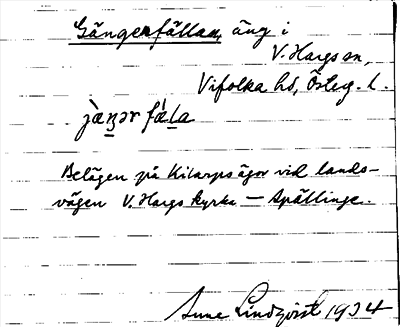 Gängerfällan, äng i
V. Hargs sn,
Vifolka hd, Östeg. l.
jæ̀ŋər fæ̀la
Belägen på Kilarps ägor vid lands-
vägen V. Hargs kyrka — Spällinge.
Anna Lindqvist 1934